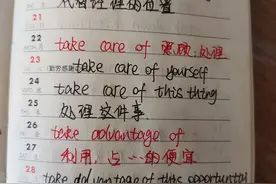 代替经理的位置
21
22
take care of 照顾,处理
23
take care of yourself
24
take care of this thing
25
处理这件事
26
take advantage of
27
利用,占…的便宜
28
take advantage of this opportunity